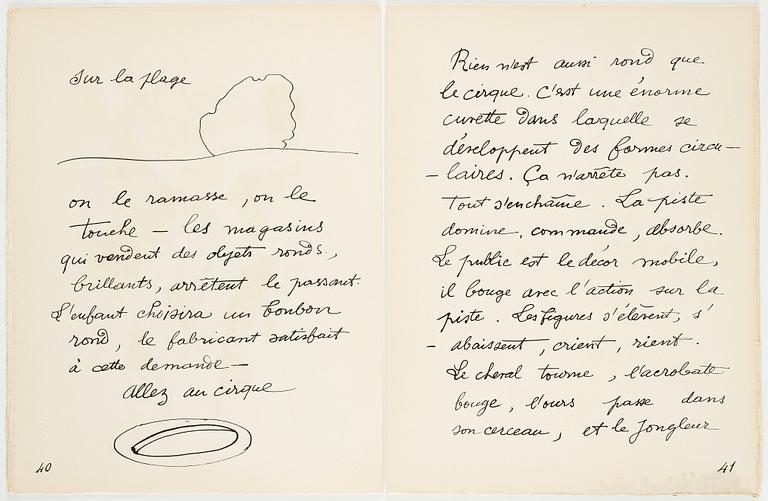 Sur la plage
on le ramasse, on le
touche — les magasins
qui vendent des objets ronds,
brillants, arrêtent le passant.
L'enfant choisira un bonbon
rond, le fabricant satisfait
à cette demande —
Allez au cirque
40
Rien n'est aussi rond que
le cirque. C'est une énorme
cuvette dans laquelle se
développent des formes circu—
— laires. Ça n'arrête pas.
Tout s'enchaîne. La piste
domine, commande, absorbe.
Le public est le décor mobile,
il bouge avec l'action sur la
piste. Les figures s'élèvent, s'
— abaissent, crient, rient.
Le cheval tourne, l'acrobate
bouge, l'ours passe dans
son cerceau, et le Jongleur
41